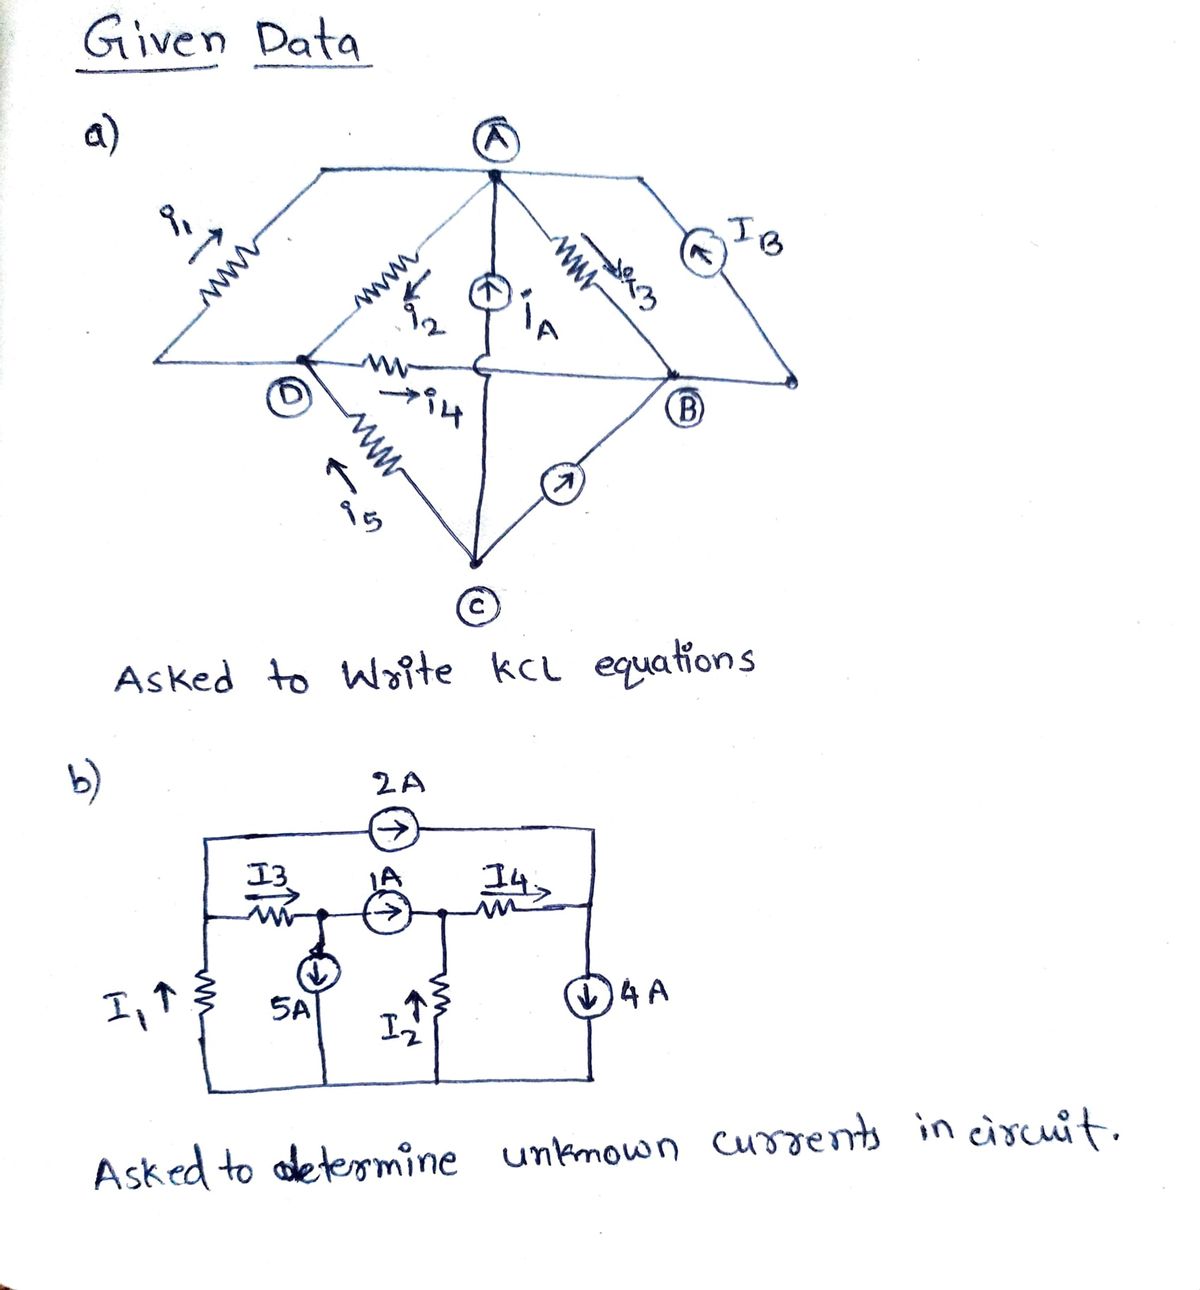 Given Data
a)
A
i1
IB
i2
iA
i3
D
i4
B
i5
C
Asked to Write KCL equations
b)
2A
I3
1A
I4
I1
5A
I2
4A
Asked to determine unknown currents in circuit.